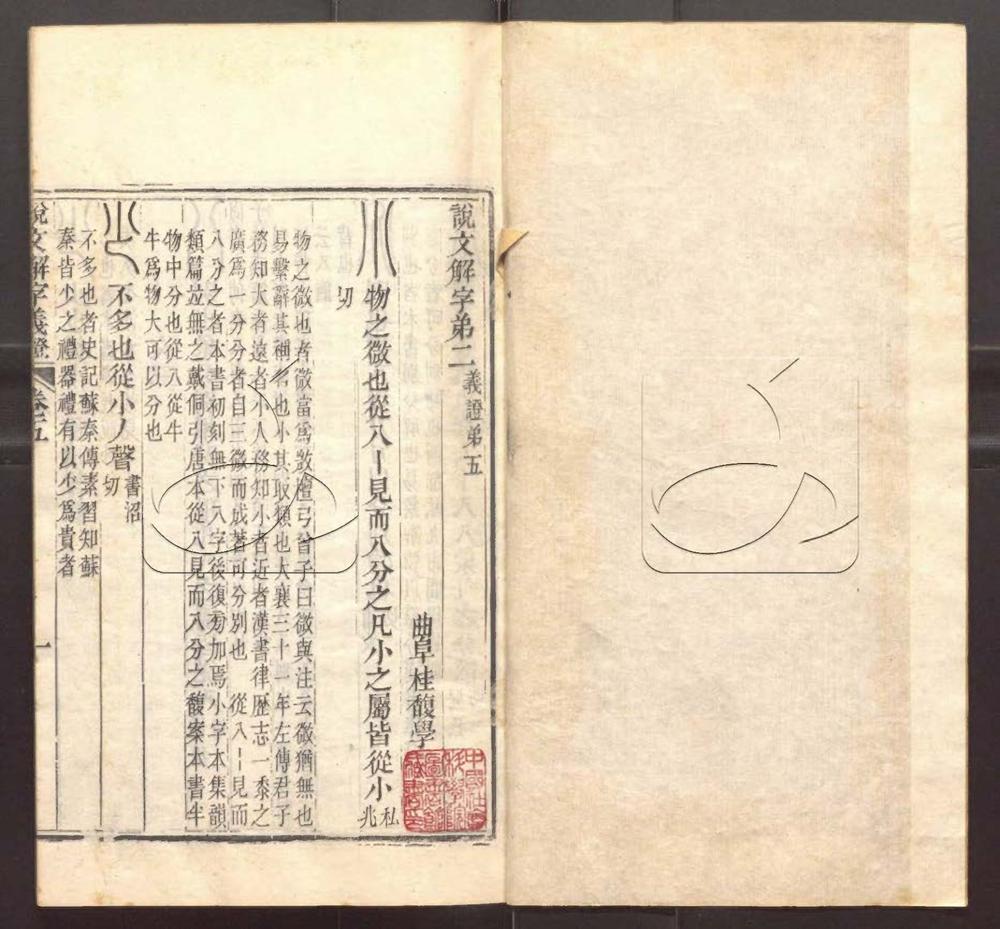 說文解字弟二 義證弟五
曲阜桂馥學
物之微也從八丨見而八分之凡小之屬皆從小 私兆
切
物之微也者微當爲𢼸檀弓曾子曰微與注云微猶無也
易繫辭其稱名也小其取類也大襄三十一年左傳君子
務知大者遠者小人務知小者近者漢書律歷志一黍之
廣爲一分分者自三微而成著可分別也 從八丨見而
八分之者本書初刻無下八字後復剜加焉小字本集韻
類篇竝無之戴侗引唐本從八見而八分之馥案本書半
物中分也從八從牛
牛爲物大可以分也
不多也從小丿聲 書沼切
不多也者史記蘇秦傳素習知蘇
秦皆少之禮器禮有以少爲貴者
說文解字義證 卷五 一